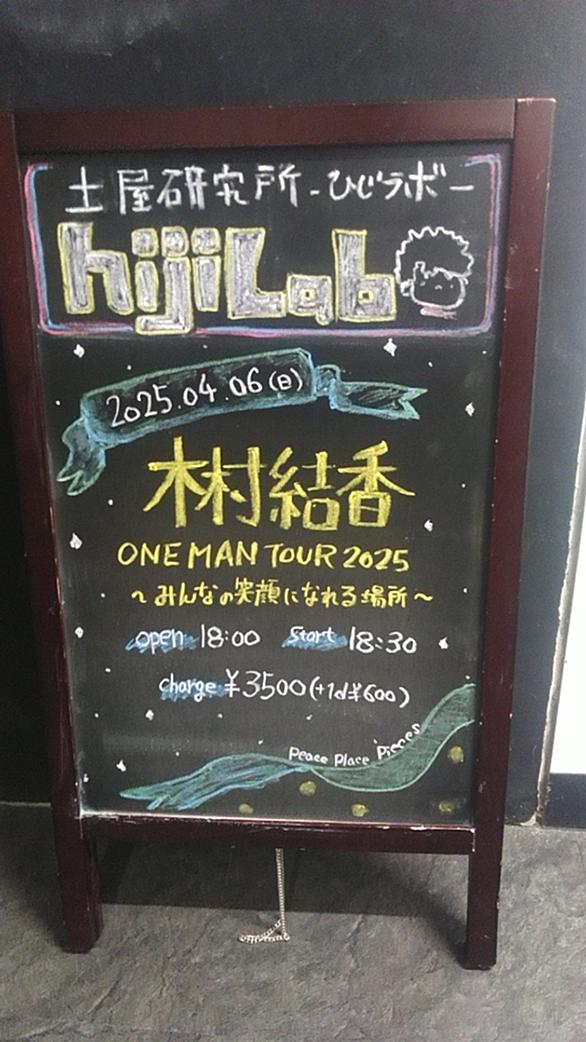 土屋研究所-ひじラボ-
hijiLab
2025.04.06(日)
木村結香
ONE MAN TOUR 2025
～みんなの笑顔になれる場所～
open 18:00 start 18:30
charge ¥3500(+1d¥600)
Peace Place Pieces